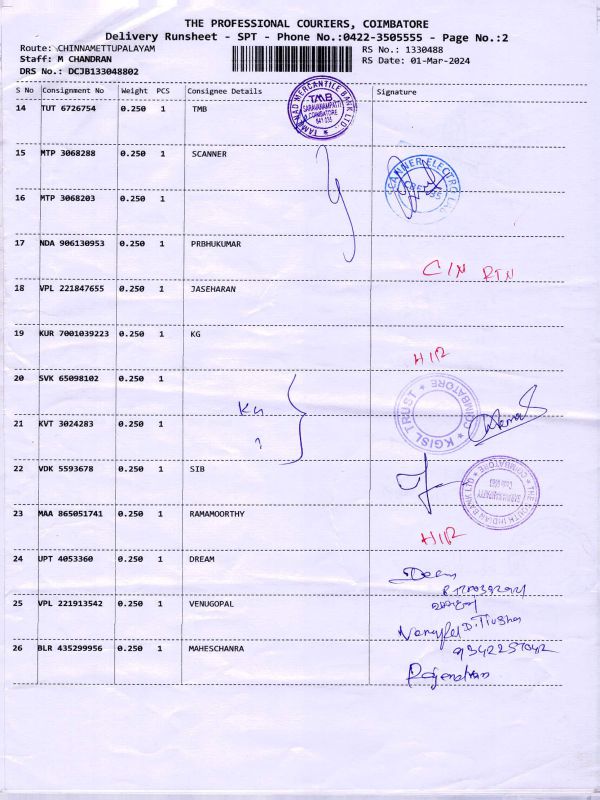 THE PROFESSIONAL COURIERS, COIMBATORE
Delivery Runsheet - SPT - Phone No.:0422-3505555 - Page No.:2
Route: CHINNAMETTUPALAYAM RS No.: 1330488
Staff: M CHANDRAN RS Date: 01-Mar-2024
DRS No.: DCJB133048802
S No Consignment No Weight PCS Consignee Details Signature
14 TUT 6726754 0.250 1 TMB
TAMILNAD MERCANTILE BANK LTD
TMB
SARAVANAMPATTI
COIMBATORE
641 035
15 MTP 3068288 0.250 1 SCANNER
16 MTP 3068203 0.250 1
17 NDA 906130953 0.250 1 PRBHUKUMAR
C/N RTN
18 VPL 221847655 0.250 1 JASEHARAN
19 KUR 7001039223 0.250 1 KG
H/R
20 SVK 65098102 0.250 1
KGISL TRUST * COIMBATORE *
21 KVT 3024283 0.250 1
22 VDK 5593678 0.250 1 SIB
THE SOUTH INDIAN BANK LTD * COIMBATORE *
23 MAA 865051741 0.250 1 RAMAMOORTHY
H/R
24 UPT 4053360 0.250 1 DREAM
25 VPL 221913542 0.250 1 VENUGOPAL
26 BLR 435299956 0.250 1 MAHESCHANRA
Rajendran